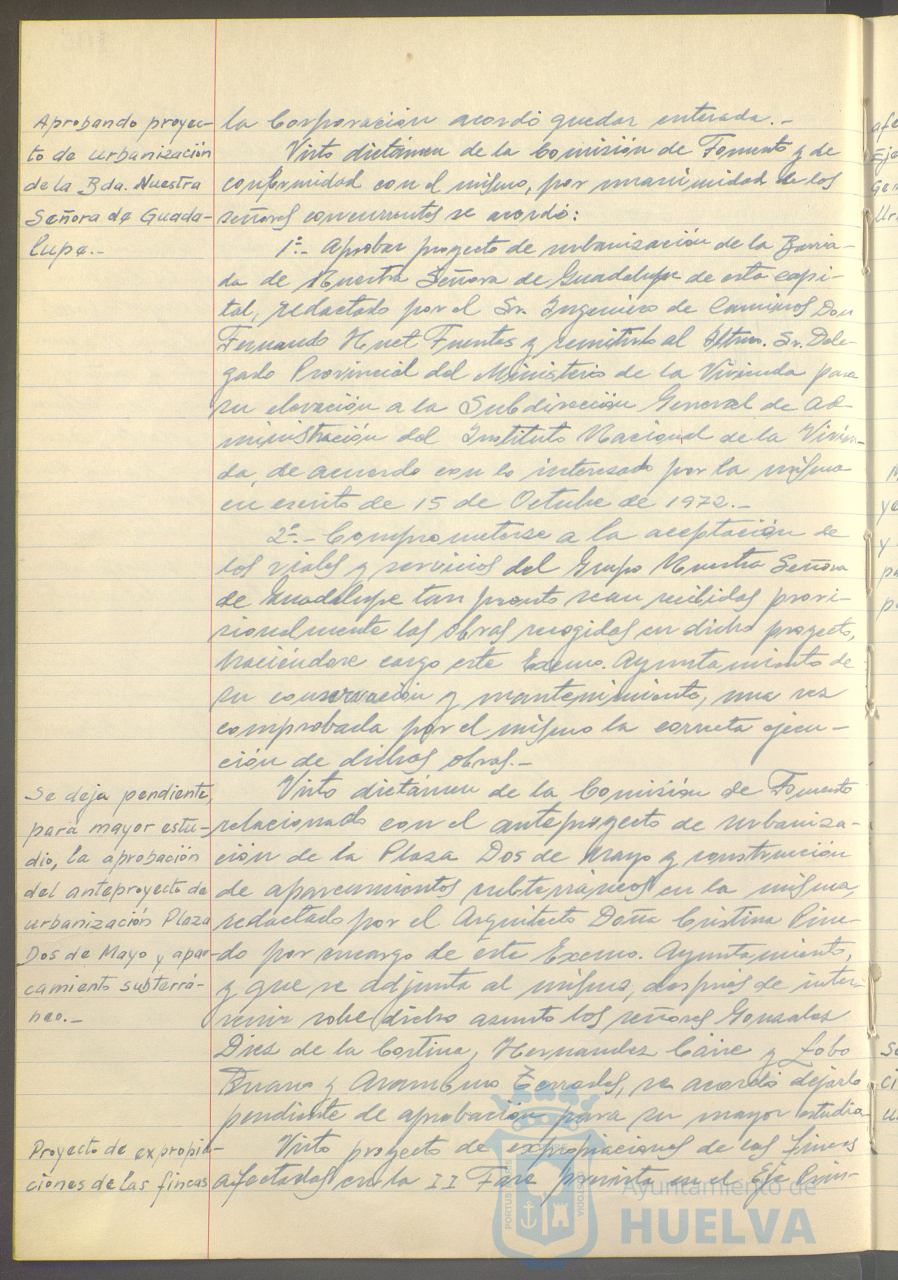 Aprobando proyec-
to de urbanización
de la Bda. Nuestra
Señora de Guada-
lupe.-
la Corporación acordó quedar enterada.-
Visto dictámen de la Comisión de Fomento y de
conformidad con el mismo, por unanimidad de los
señores concurrentes se acordó:
1º.- Aprobar proyecto de urbanización de la Barria-
da de Nuestra Señora de Guadalupe de esta capi-
tal, redactado por el Sr. Ingeniero de Caminos Don
Fernando Huet Fuentes y remitirlo al Iltmo. Sr. Dele-
gado Provincial del Ministerio de la Vivienda para
su elevación a la Subdirección General de Ad-
ministración del Instituto Nacional de la Vivien-
da, de acuerdo con lo interesado por la misma
en escrito de 15 de Octubre de 1972.-
2º.- Comprometerse a la aceptación de
los viales y servicios del Grupo Nuestra Señora
de Guadalupe tan pronto sean recibidas provi-
sionalmente las obras recogidas en dicho proyecto,
haciéndose cargo este Excmo. Ayuntamiento de
su conservación y mantenimiento, una vez
comprobada por el mismo la correcta ejecu-
ción de dichas obras.-
Se deja pendiente,
para mayor estu-
dio, la aprobación
del anteproyecto de
urbanización Plaza
Dos de Mayo y apar-
camiento subterrá-
neo.-
Visto dictámen de la Comisión de Fomento
relacionado con el anteproyecto de urbaniza-
ción de la Plaza Dos de Mayo y construcción
de aparcamientos subterráneos en la misma,
redactado por el Arquitecto Doña Cristina Pine-
do por encargo de este Excmo. Ayuntamiento,
y que se adjunta al mismo, después de inter-
venir sobre dicho asunto los señores Gonzalez
Diez de la Cortina, Hernandez Caire y Lobo
y Aramburu se acordó dejarlo
pendiente de aprobación para su mayor estudio
Proyecto de expropia-
ciones de las fincas
Visto proyecto de expropiaciones de las fincas
afectadas en la II Fase prevista en el Eje Prin-
Ayuntamiento de
HUELVA